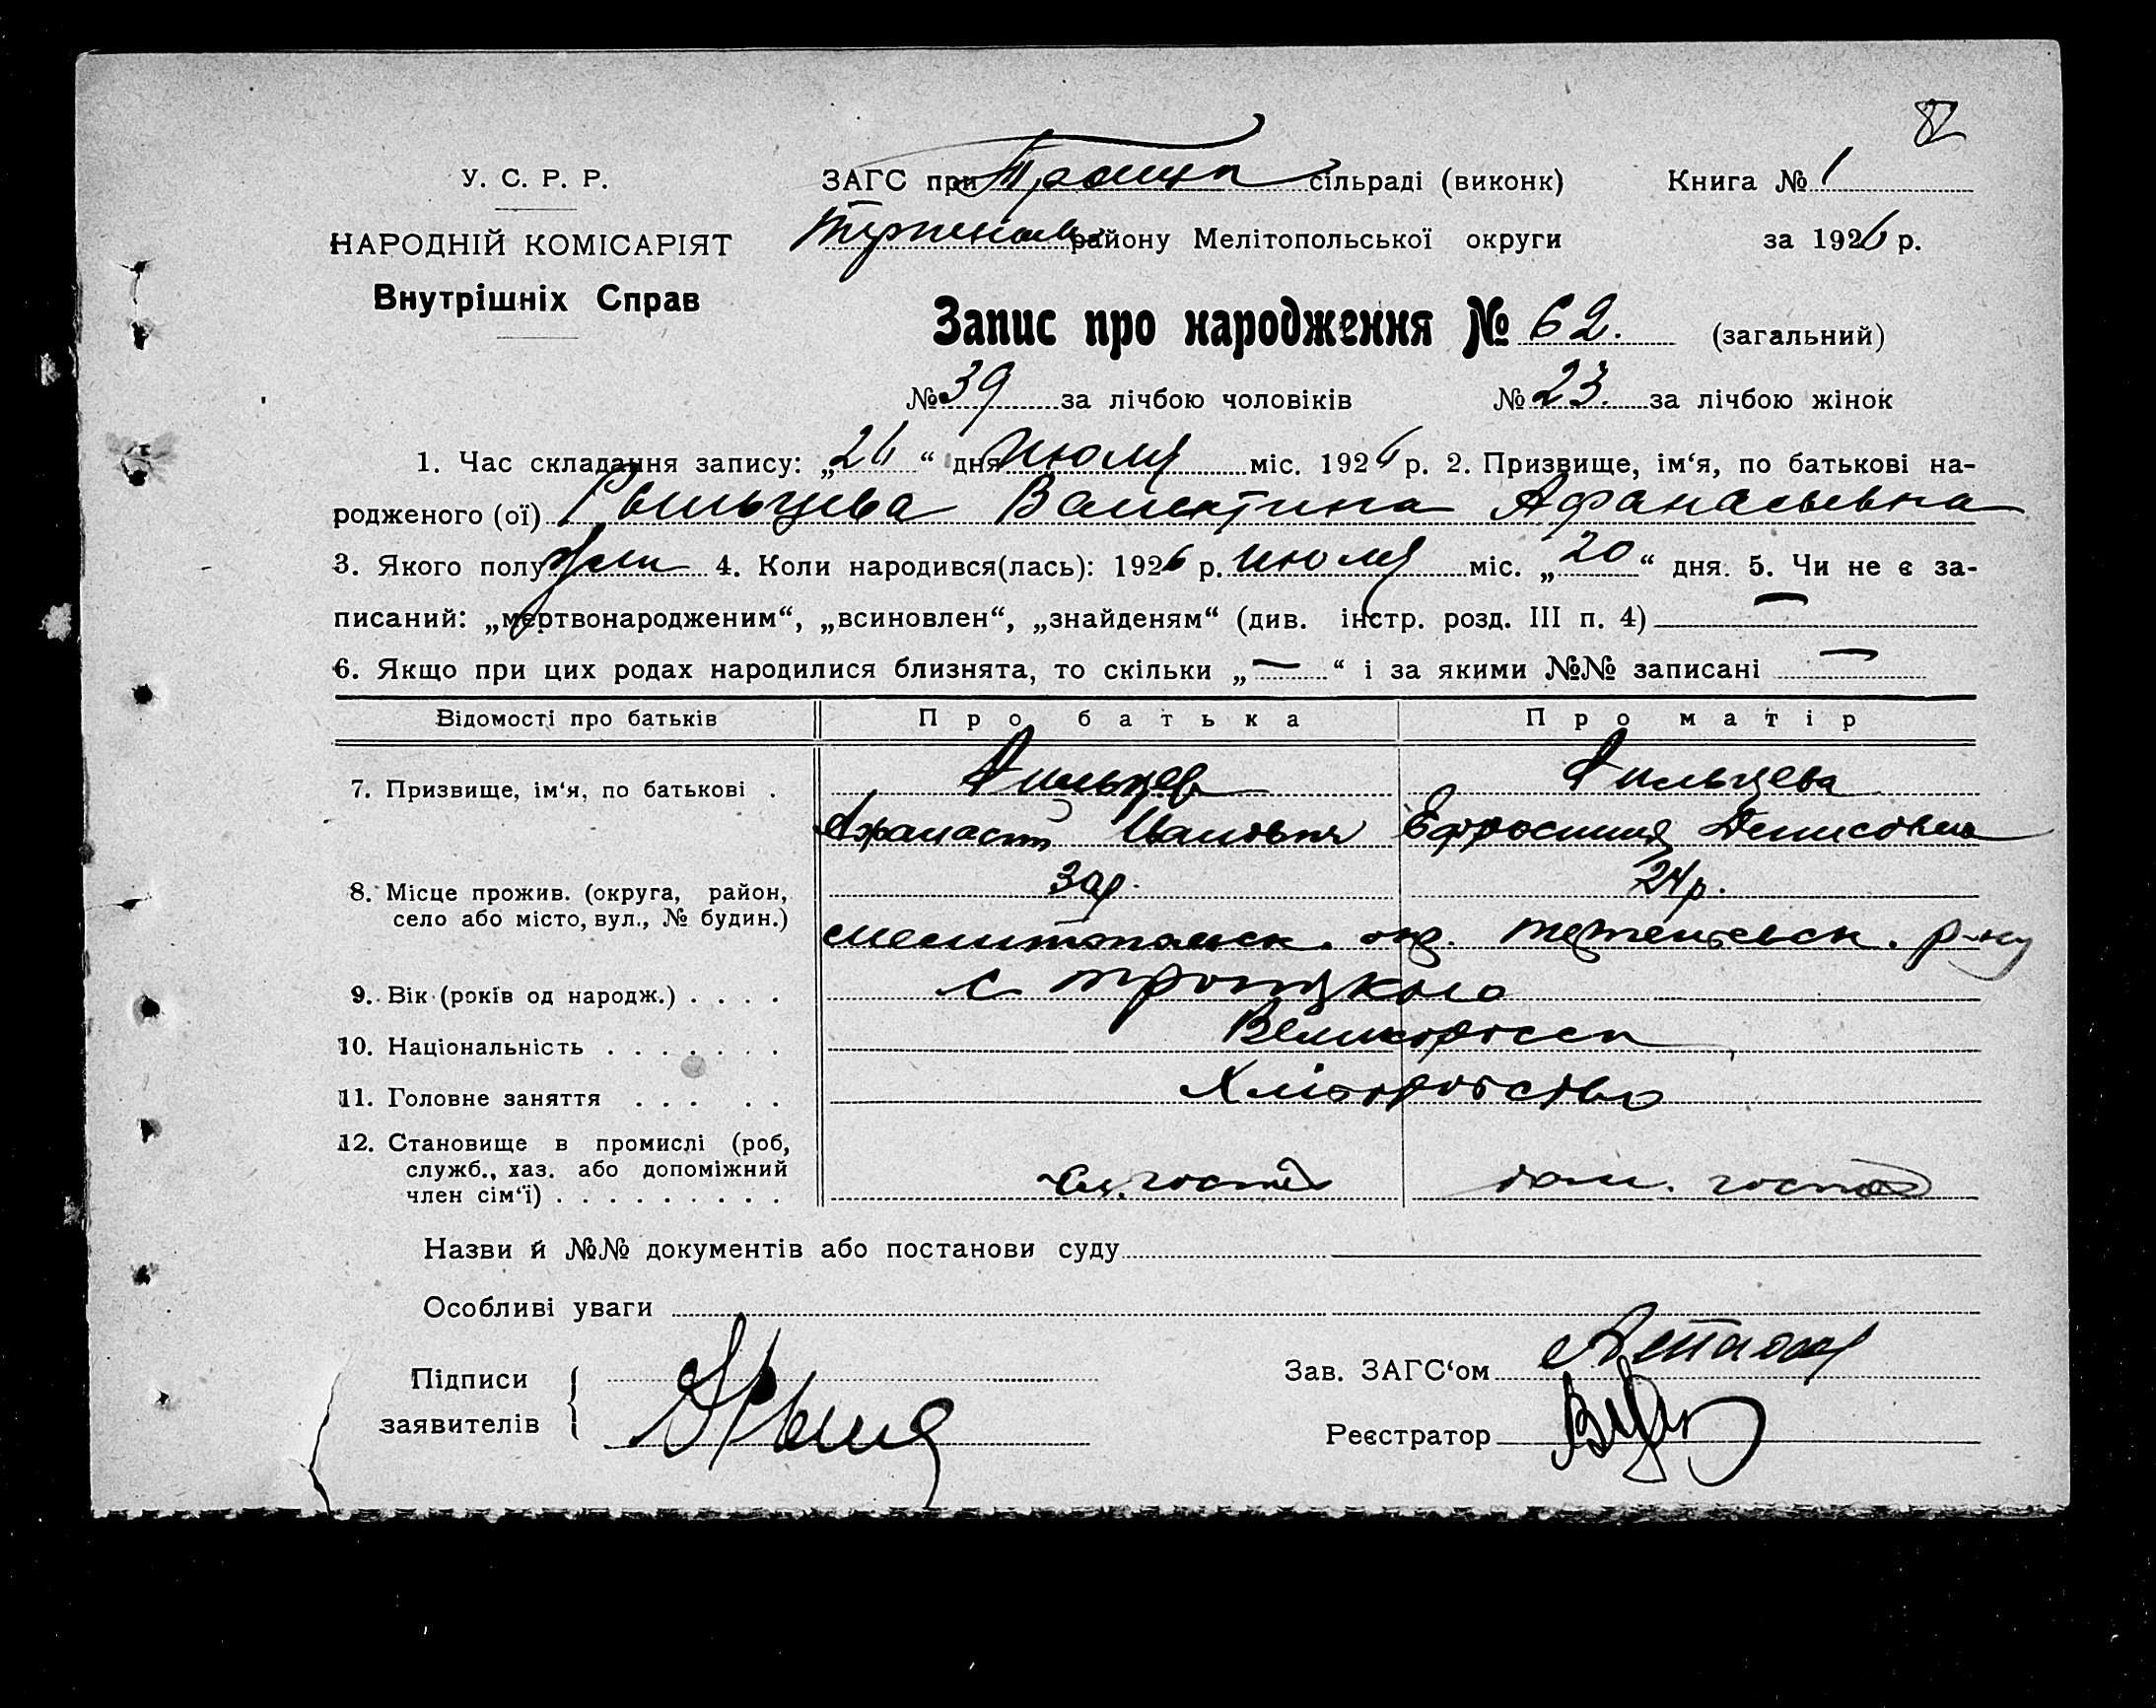 82
У. С. Р. Р.
НАРОДНІЙ КОМІСАРІЯТ
Внутрішніх Справ
ЗАГС при Троицк сільраді (виконк) Книга № 1
району Мелітопольської округи за 1926 р.
Запис про народження № 62. (загальний)
№ 39 за лічбою чоловіків № 23. за лічбою жінок
1. Час складання запису: „26“ дня Июля міс. 1926 р. 2. Призвище, ім‘я, по батькові на-
родженого (ої) Рыльцева Валентина Афанасьевна
3. Якого полу жен 4. Коли народився(лась): 1926 р. Июля міс. „20“ дня. 5. Чи не є за-
писаний: „мертвонародженим“, „всиновлен“, „знайденям“ (див. інстр. розд. III п. 4) —
6. Якщо при цих родах народилися близнята, то скільки „—“ і за якими №№ записані —
Відомості про батьків Про батька Про матір
7. Призвище, ім‘я, по батькові . Рильцев Рильцева
Афанасій Иванович Ефросиния Денисовна
8. Місце прожив. (округа, район,
село або місто, вул., № будин.)
30р. 24р.
мелитопольск. окр. р-ну
9. Вік (років од народж.) . . . . с Троицкого
10. Національність . . . . . . . Великоросси
11. Головне заняття . . . . . Хліборобство
12. Становище в промислі (роб,
служб., хаз. або допоміжний
член сім‘ї) . . . . . . . . . дом.
Назви й №№ документів або постанови суду
Особливі уваги
Підписи
заявителів
Зав. ЗАГС‘ом
Реєстратор